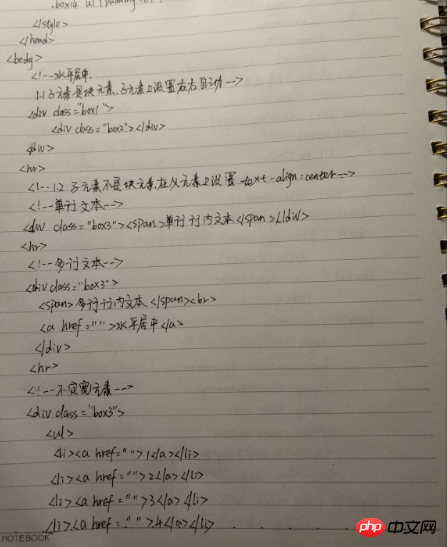 .box14 ul {
</style>
</head>
<body>
<!--水平居中.
1.1 子元素是块元素,子元素上设置左右自动-->
<div class="box1">
<div class="box2"></div>
</div>
<hr>
<!--1.2 子元素不是块元素,在父元素上设置 text-align:center-->
<!--单行文本-->
<div class="box3"><span>单行行内文本</span></div>
<hr>
<!--多行文本-->
<div class="box3">
<span>多行行内文本</span><br>
<a href="">水平居中</a>
</div>
<hr>
<!--不定宽元素-->
<div class="box3">
<ul>
<li><a href="">1</a></li>
<li><a href="">2</a></li>
<li><a href="">3</a></li>
<li><a href="">4</a></li>
NOTEBOOK
php中文网